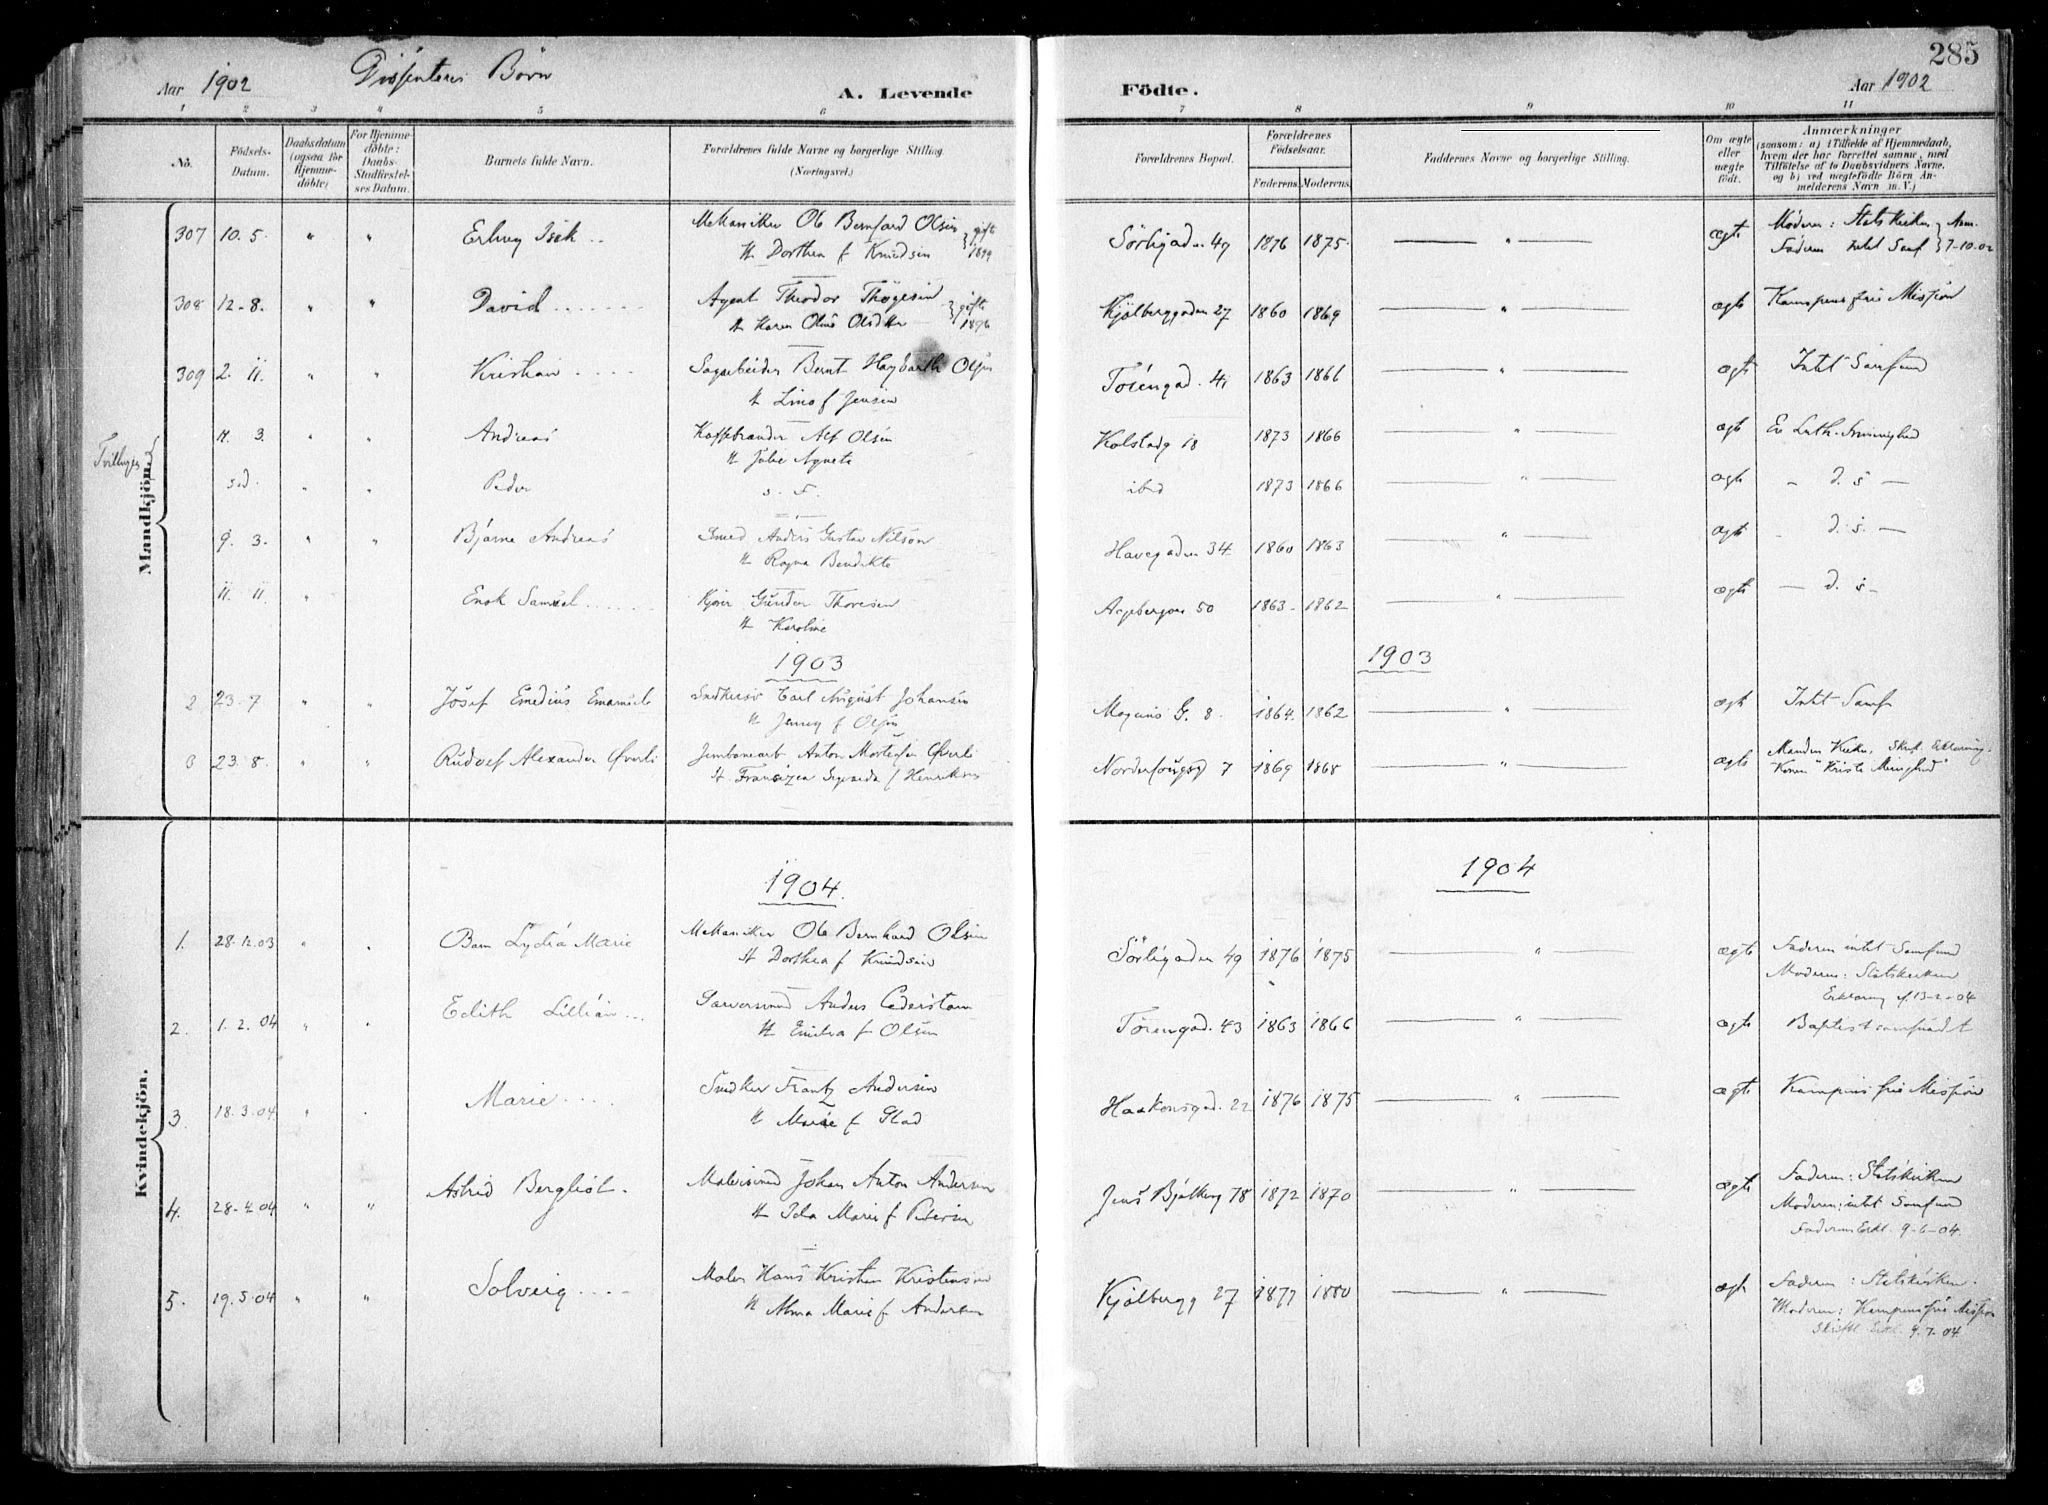 285
Aar 1902 Dissenteres Börn A. Levende Födte. Aar 1902
1 2 3 4 5 6 7 8 9 10 11
No. Födsels-Datum. Daabsdatum (ogsaa for Hjemmedöbte) For Hjemmedöbte: Daabs-Stadfæstelses Datum. Barnets fulde Navn. Forældrenes fulde Navne og borgerlige Stilling. (Næringsvei.) Forældrenes Bopæl. Forældrenes Födselsaar. Faderens. Moderens. Faddernes Navne og borgerlige Stilling. Om ægte eller uægte födt. Anmærkninger (saasom: a) i Tilfælde af Hjemmedaab, hvem der har forrettet samme, med Tilföielse af to Daabsvidners Navne, og b) ved uægtefödte Börn Anmelderens Navn m. V.)
Mandkjön.
307 10.5 " " Erling Isak Mekaniker Ole Bernhard Olsen gift 1899 Sörligaden 49 1876 1875 " ægte Moderen: Statskirken
H. Dorthea f. Knudsen Faderen intet Samf 7-10.02
308 12-8. " " David Agent Theodor Thøgesen gifte 1896 Kjølberggaden 27 1860 1869 " ægte Kampens frie Missjon
H. Karen
309 2. 11. " " Kristian Sagarbeider Bernt Hagbarth Olsen Torengad. 41 1863 1866 " ægte Intet Samfund
H. Lina f. Jensen
Tvillinger
11. 3. " " Andreas Kaffebrænder Alf Olsen Kolstadg 18 1873 1866 " ægte Ev Luth. Frimenighed
H. Julie Agnete
s.d. " " Peder s. F. ibid 1873 1866 " ægte - d. s -
9. 3. " " Bjarne Andreas Smed Anders Gustav Nilson Havegaden 34 1860 1863 " ægte - d. s. -
H. Ragna Bendikte
11. 11. " Enok Samuel Kjører Gunder Thoresen Aagebergvn 50 1863 1862 " ægte - d. s -
H. Karoline
1903 1903
2 23.7 " " Josef Emanuel Snedkersv Carl August Johansen Magnus G. 8. 1864. 1862 " ægte Intet Samf
H. Jenny f Olsen
3 23.8. " " Rudolf Alexander Øverli Jernbanearb Anton Mortensen Øverli 7 1869 1868 " ægte Manden Kirken, Skrift. Erklæring.
H. f Henriksen Konen "Kristi Menighed"
Kvindekjön.
1904. 1904
1. 28.12.03 " " Lydia Marie Mekaniker Ole Bernhard Olsen Sörligaden 49 1876 1875 " ægte Faderen intet Samfund
H. Dorthea f Knudsen Moderen: Statskirken
Erklæring af 13-2-04
2. 1.2.04 " " Edith Lillian Garversvend Anders Cederstam Torengad. 43 1863 1866 " ægte Baptistsamfundet
H. Emilia f Olsen
3 18.3.04 " . Marie Snedker Frantz Andersen Haakonsgad. 22 1876 1875 " ægte Kampens frie Missjon
H. Marie f Stad
4. 28-4.04 " " Astrid Bergliot. Malersvend Johan Anton Andersen Jens Bjelkeng 78 1872 1870 " ægte Faderen: Statskirken
H. Ida Marie f Petersen Moderen: intet Samfund
Faderens Erkl. 9-6-04.
5. 19.5.04 " " Solveig Maler Hans Kristian Kristensen Kjølbergg 27 1877 1880 " ægte Faderen: Statskirken.
H. Alma Marie f Andersen Moderen: Kampens frie Missjon
Skriftl. Erkl. 9.7.04